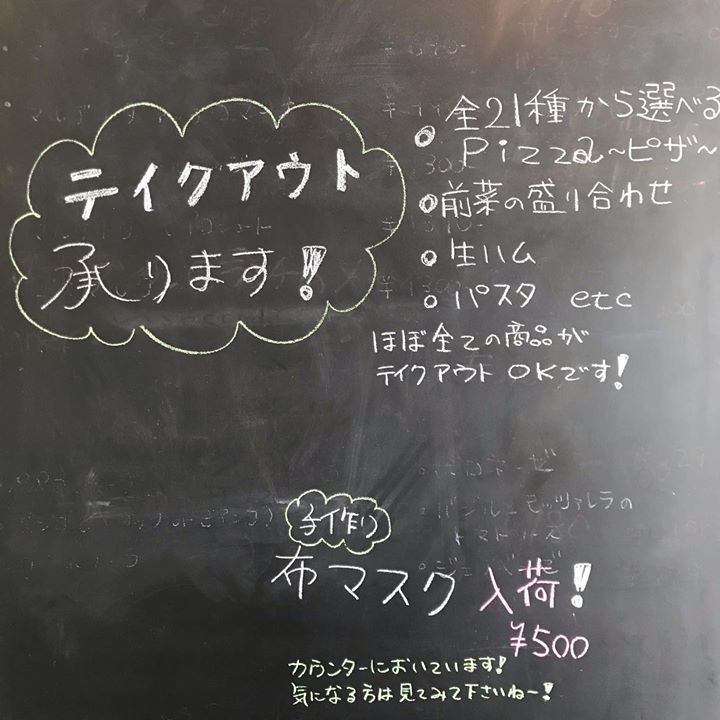 テイクアウト
承ります!
全21種から選べる
Pizza~ピザ~
前菜の盛り合わせ
生ハム
パスタ etc
ほぼ全ての商品が
テイクアウト OKです!
手作り
布マスク 入荷!
¥500
カウンターにおいています!
気になる方は見てみて下さいねー!